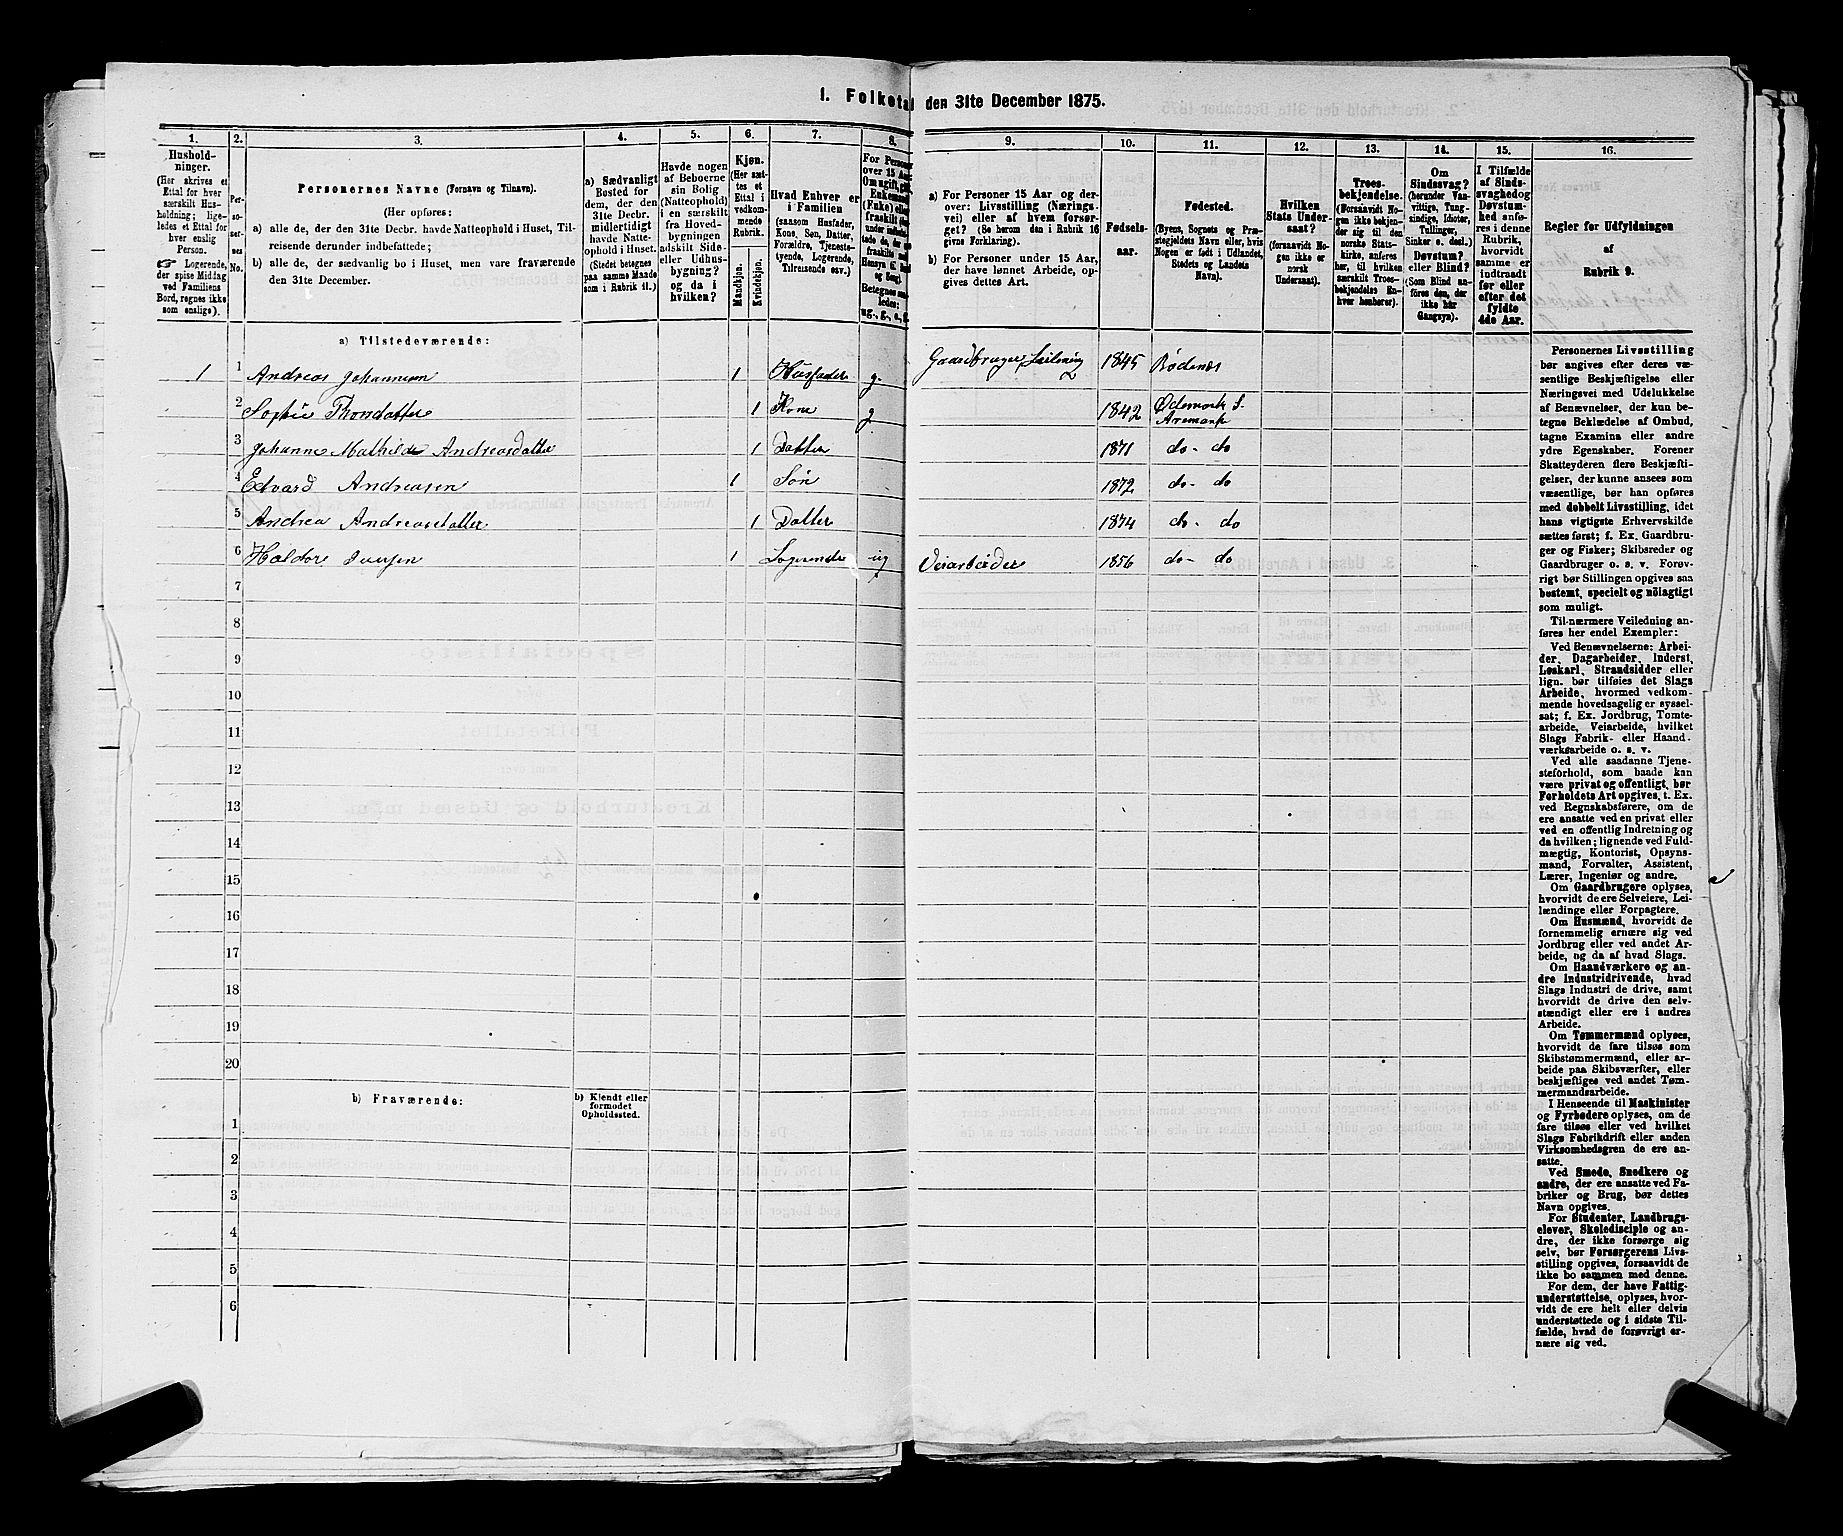 1. Folketa den 31te December 1875.
1. 2. 3. 4. 5. 6. 7. 8. 9. 10. 11. 12. 13. 14. 15. 16.
Hushold-
ninger.
(Her skrives et
Ettal for hver
særskilt Hus-
holdning; lige-
ledes et Ettal for
hver enslig
Person.
☞ Logerende,
der spise Middag
ved Familiens
Bord, regnes ikke
som enslige).
Per-
so-
ner-
nes
No.
Personernes Navne (Fornavn og Tilnavn).
(Her opføres:
a) alle de, der den 31te Decbr. havde Natteophold i Huset, Til-
reisende derunder indbefattede;
b) alle de, der sædvanlig bo i Huset, men vare fraværende
den 31te December.
a) Sædvanligt
Bosted for
dem, der den
31te Decbr.
midlertidigt
havde Natte-
ophold i Huset.
(Stedet betegnes
paa samme Maade
som i Rubrik 11.)
Havde nogen
af Beboerne
sin Bolig
(Natteophold)
i en særskilt
fra Hoved-
bygningen
adskilt Side-
eller Udhus-
bygning?
og da i
hvilken?
Kjøn.
(Her sæt-
tes et
Ettal i
vedkom-
mende
Rubrik.
Mandkjøn.
Kvindekjøn.
Hvad Enhver er
i Familien
(saasom Husfader,
Kone, Søn, Datter,
Forældre, Tjeneste-
tyende, Logerende,
Tilreisende osv.)
For Personer
over 15 Aar:
Om ugift, gift,
Enkemand
(Enke) eller
fraskilt
a) For Personer 15 Aar og der-
over: Livsstilling (Nærings-
vei) eller af hvem forsør-
get? (Se herom den i Rubrik 16
givne Forklaring).
b) For Personer under 15 Aar,
der have lønnet Arbeide, op-
gives dettes Art.
Fødsels-
aar.
Fødested.
(Byens, Sognets og Præ-
stegjeldets Navn eller, hvis
Nogen er født i Udlandet,
Stedets og Landets
Navn).
Hvilken
Stats Under-
saat?
(forsaavidt No-
gen ikke er
norsk
Undersaat).
Troes-
bekjendelse.
(Forsaavidt No-
gen ikke bekjen-
der sig til den
norske Stats-
kirke, anføres
her, til hvilken
særskilt Troes-
bekjendelse En-
hver henhører).
Om
Sindssvag?
(herunder Van-
vittige, Tung-
sindige, Idioter,
Tullinger,
Sinker o. desl.)
Døvstum?
eller Blind?
(Som Blind an-
føres den, der
ikke har
Gangsyn).
I Tilfælde
af Sinds-
svaghed og
Døvstum-
hed anfø-
res i denne
Rubrik,
hvorvidt
samme er
indtraadt
før eller
efter det
fyldte
4de Aar.
Regler for Udfyldningen
af
Rubrik 9.
a) Tilstedeværende:
1 1 Andreas Johannesen 1 Husfader g. Gaardbruger 1845 Rødenæs
2 Sophie Thorsdatter 1 Kone g 1842 Ødemark S. Aremark
3 Johanne Mathilde Andreasdatter 1 Datter 1871 do - do
4 Edvard Andreasen 1 Søn 1872 do - do
5 Andrea Andreasdatter 1 Datter 1874 do - do
6 Haldor Iversen 1 Logerende ug Veiarbeider 1856 do - do
7
8
9
10
11
12
13
14
15
16
17
18
19
20
b) Fraværende:
b) Kjendt eller
formodet
Opholdssted.
1
2
3
4
5
6
Personernes Livsstilling
bør angives efter deres væ-
sentlige Beskjæftigelse eller
Næringsvei med Udelukkelse
af Benævnelser, der kun be-
tegne Beklædelse af Ombud,
tagne Examina eller andre
ydre Egenskaber. Forener
Skatteyderen flere Beskjæfti-
gelser, der kunne ansees som
væsentlige, bør han opføres
med dobbelt Livsstilling, idet
hans vigtigste Erhvervskilde
sættes først; f. Ex. Gaardbru-
ger og Fisker; Skibsreder og
Gaardbruger o. s. v. Forøv-
rigt bør Stillingen opgives saa
bestemt, specielt og nöiagtigt
som muligt.
Til nærmere Veiledning an-
føres her endel Exempler:
Ved Benævnelserne: Arbei-
der, Dagarbeider, Inderst,
Løskarl, Strandsidder eller
lign. bør tilføies det Slags
Arbeide, hvormed vedkom-
mende hovedsagelig er syssel-
sat; f. Ex. Jordbrug, Tomte-
arbeide, Veiarbeide, hvilket
Slags Fabrik- eller Haand-
værksarbeide o. s. v.
Ved alle saadanne Tjene-
steforhold, som baade kan
være privat og offentligt, bør
Forholdets Art opgives, t. Ex.
ved Regnskabsførere, om de
ere ansatte ved en privat eller
ved en offentlig Indretning og
da hvilken; lignende ved Fuld-
mægtig, Kontorist, Opsyns-
mand, Forvalter, Assistent,
Lærer, Ingeniør og andre.
Om Gaardbrugere oplyses,
hvorvidt de ere Selveiere, Lei-
lændinge eller Forpagtere.
Om Husmænd, hvorvidt de
fornemmelig ernære sig ved
Jordbrug eller ved andet Ar-
beide, og da af hvad Slags.
Om Haandværkere og an-
dre Industridrivende, hvad
Slags Industri de drive, samt
hvorvidt de drive den selv-
stændigt eller ere i andres
Arbeide.
Om Tømmermænd oplyses,
hvorvidt de fare tilsøs som
Skibstømmermænd, eller ar-
beide paa Skibsværfter, eller
beskjæftiges ved andet Tøm-
mermandsarbeide.
I Henseende til Maskinister
og Fyrbødere oplyses, om de
fare tilsøs eller ved hvilket
Slags Fabrikdrift eller anden
Virksomhedsgren de ere an-
satte.
Ved Smede, Snedkere og
andre, der ere ansatte ved Fa-
briker og Brug, bør dettes
Navn opgives.
For Studenter, Landbrugs-
elever, Skoledisciple og an-
dre, der ikke forsørge sig
selv, bør Forsørgerens Livs-
stilling opgives, forsaavidt de
ikke bo sammen med denne.
For dem, der have Fattig-
understøttelse, oplyses, hvor-
vidt de ere helt eller delvis
understøttede og i sidste Til-
fælde, hvad de forøvrigt er-
nære sig ved.